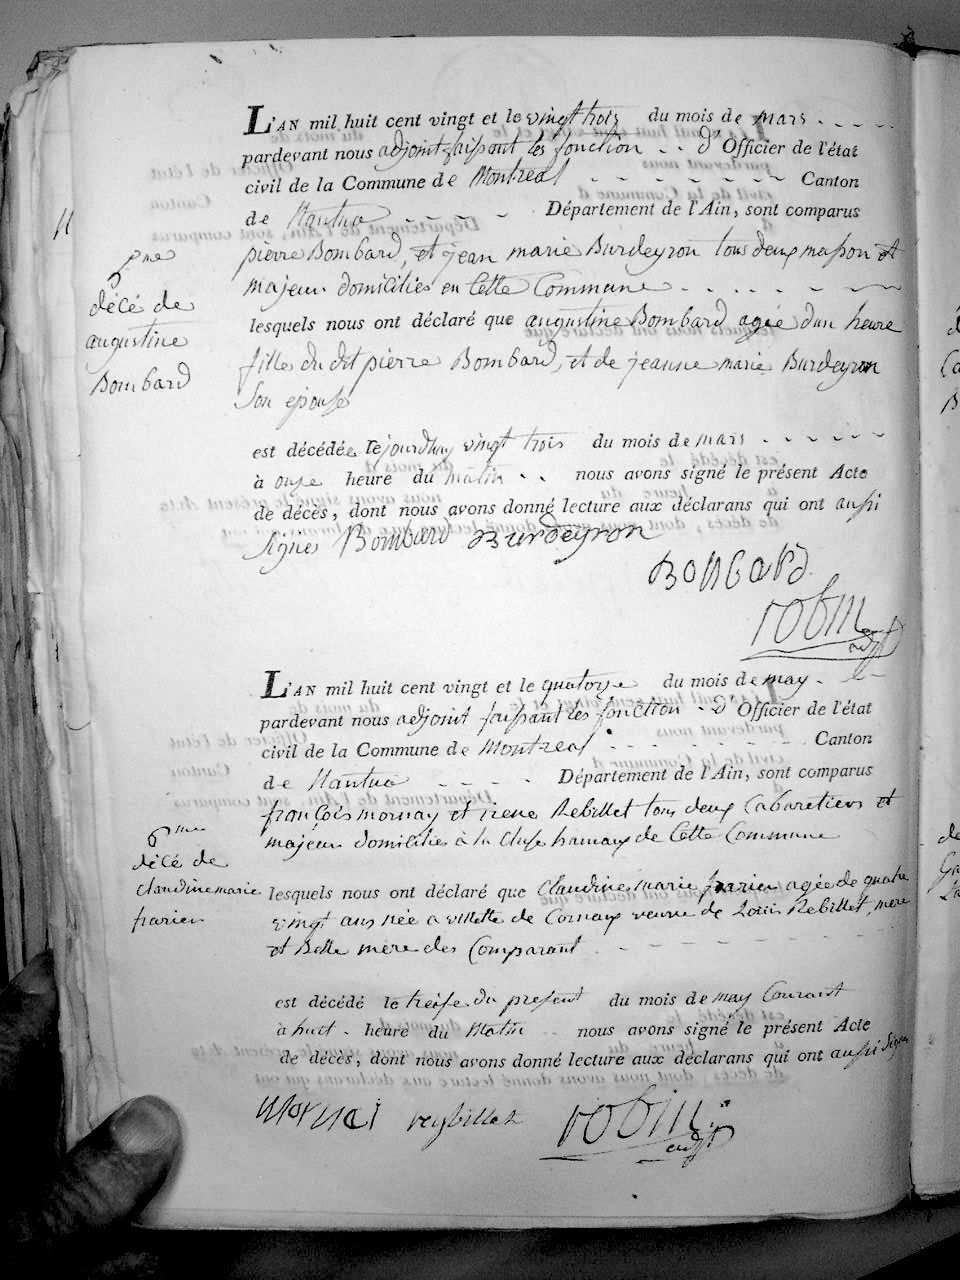 L'AN mil huit cent vingt et le vingt trois du mois de mars
pardevant nous adjoint faisant les fonction d' Officier de l'état
civil de la Commune de Montreal Canton
de Nantua Département de l'Ain, sont comparus
11
5me
décé de
augustine
Bombard
pierre Bombard, et jean marie Burdeyron tous deux masson et
majeur domiciliés en Cette Commune
lesquels nous ont déclaré que augustine Bombard agée d'un heure
filles du dit pierre Bombard, et de jeanne marie Burdeyron
Son epouse
est décédée le jourdhuy vingt trois du mois de mars
à onze heure du matin nous avons signé le présent Acte
de décès, dont nous avons donné lecture aux déclarans qui ont aussi
signés Bombard Burdeyron
BONBARD
robin
adjt
L'AN mil huit cent vingt et le quatorze du mois de may
pardevant nous adjoint faisant les fonction d' Officier de l'état
civil de la Commune de Montreal Canton
de Nantua Département de l'Ain, sont comparus
françois mornay et irene Rebillet tous deux Cabaretiers et
majeur domiciliés à la Cluse hamaux de Cette Commune
6me
décé de
claudine marie
frarier
lesquels nous ont déclaré que Claudine marie frarier agée de quatre
vingt ans née a villette de Cornaux veuve de Louis Rebillet, mère
et Belle mère des Comparant
est décédé le treise du present du mois de may Courant
à huit heure du Matin nous avons signé le présent Acte
de décès, dont nous avons donné lecture aux déclarans qui ont aussi signés
Mornai reybillet robin
adjt